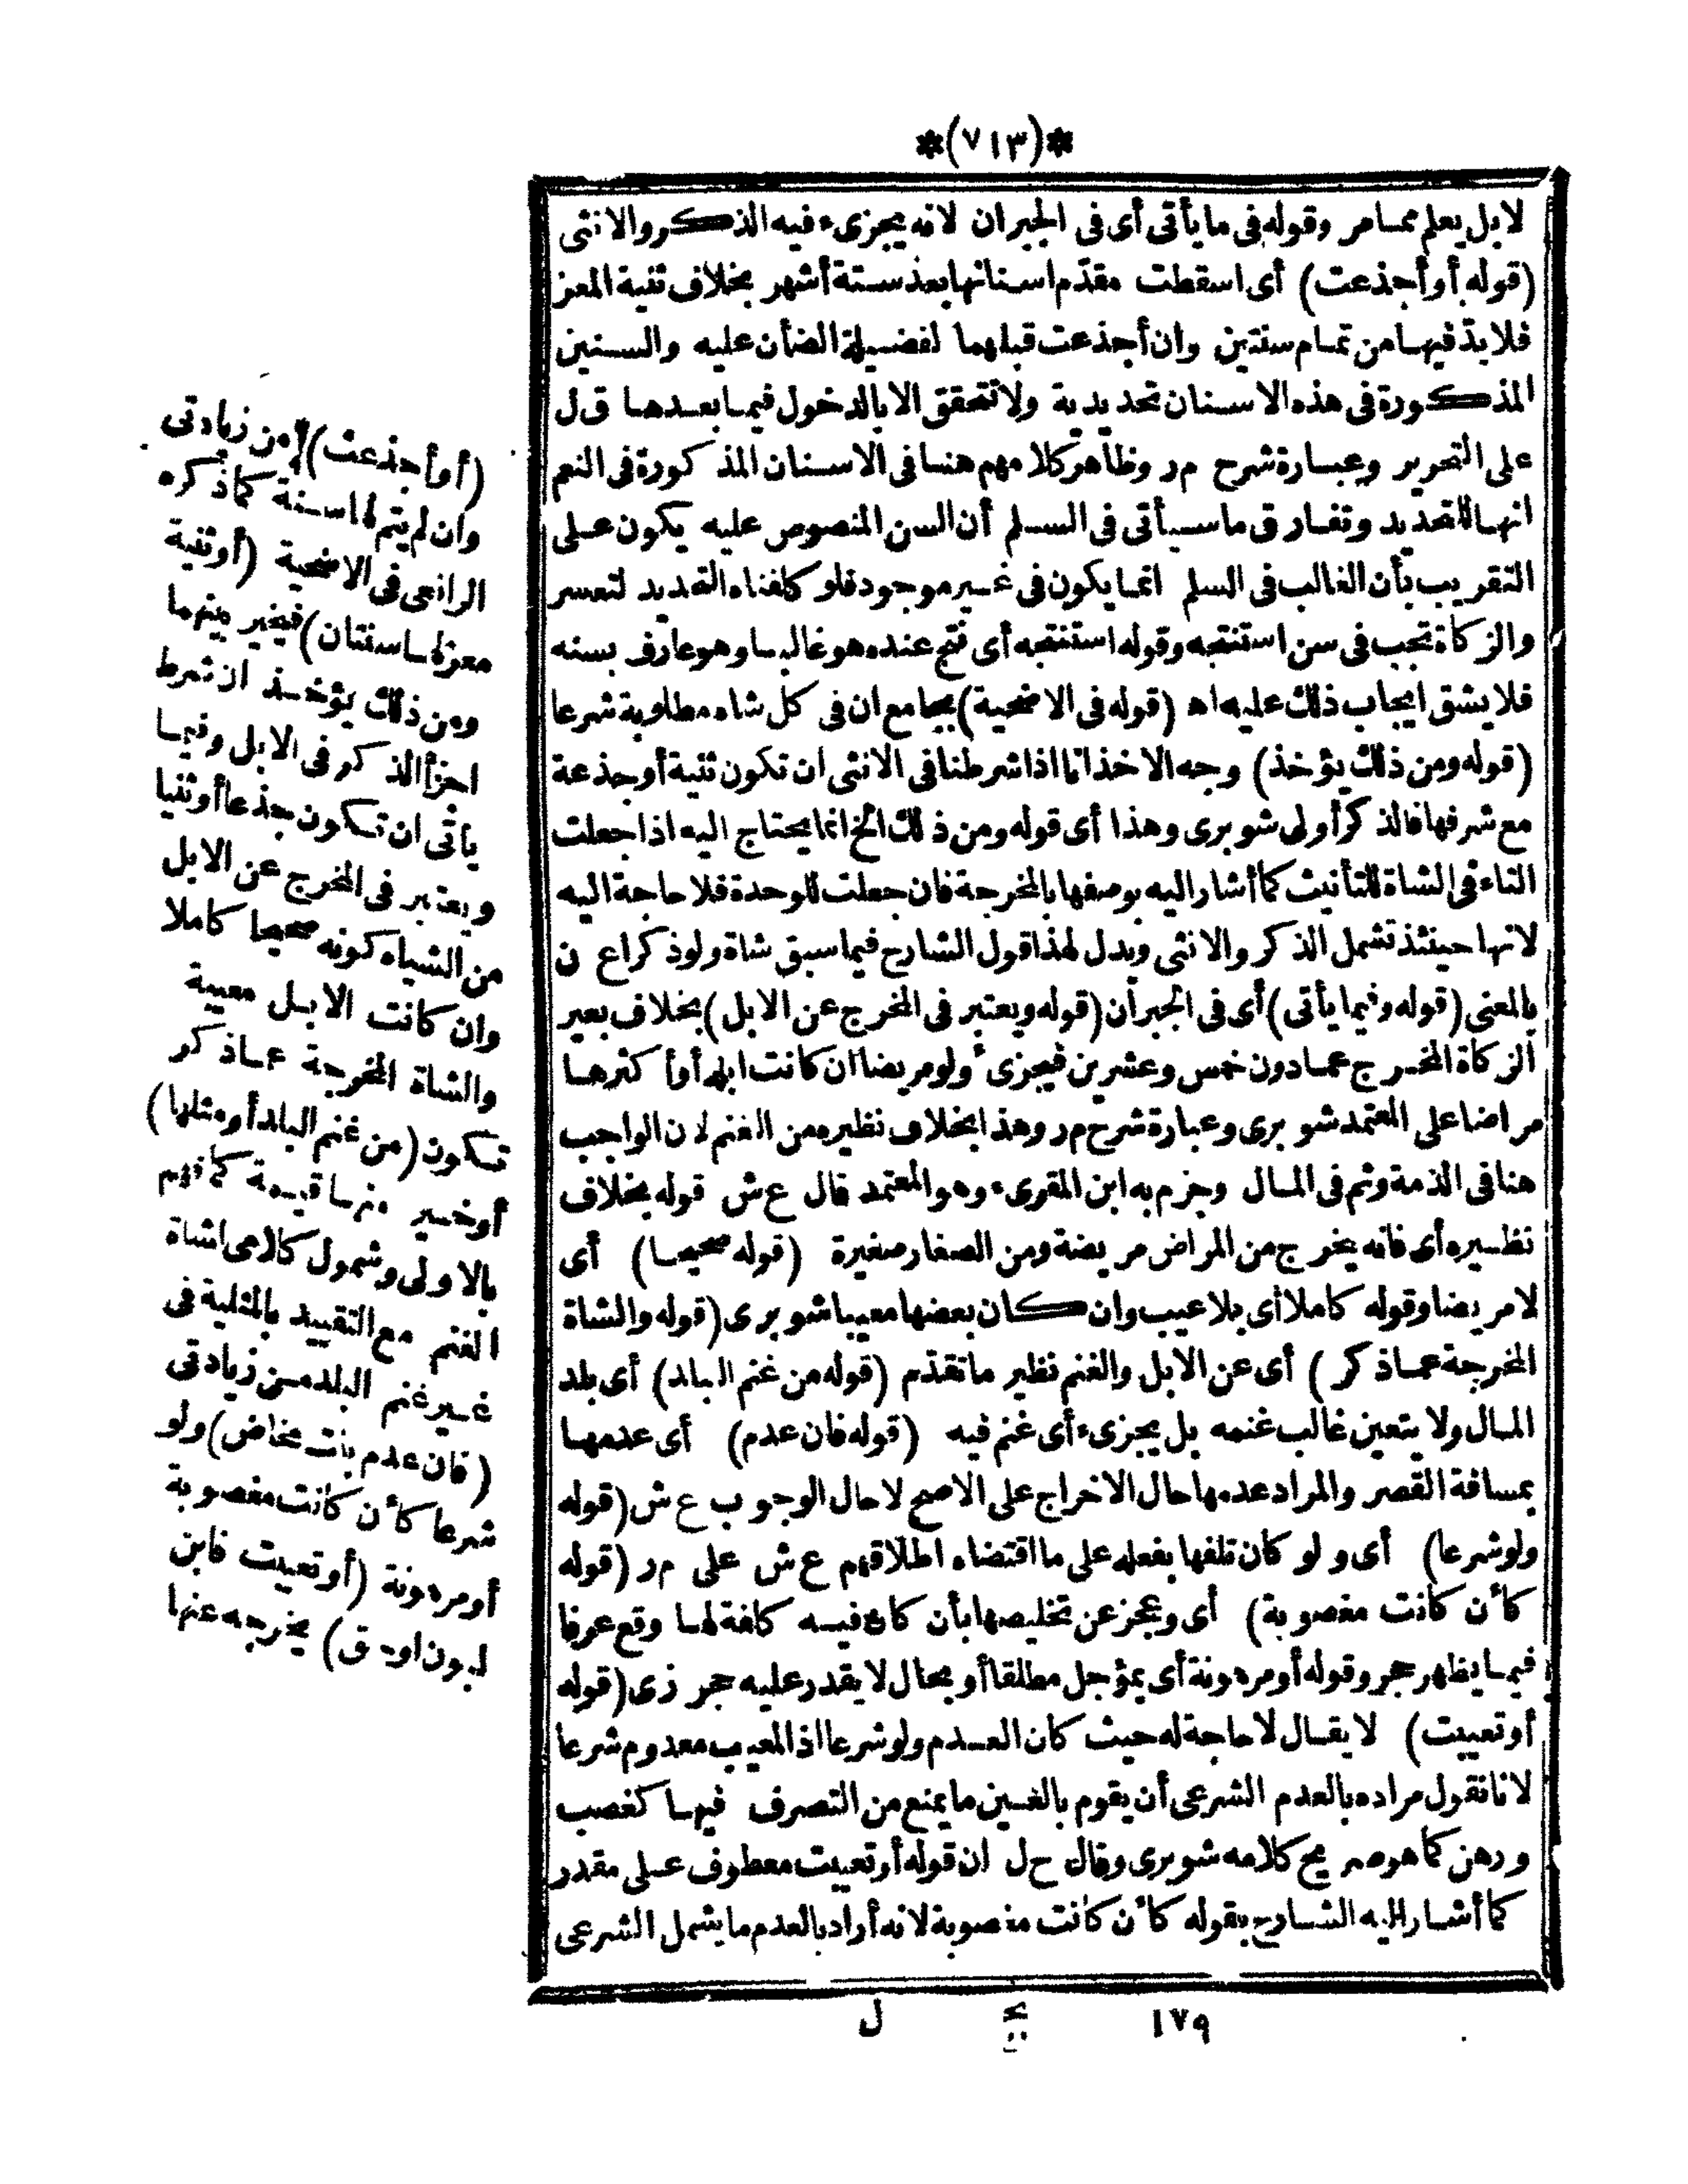 *(٧١٣)*
لابل يعلم ممامر وقوله فى ما يأتى أى فى الجبران لانه يجزىء فيه الذكر والانثى
(قوله أو أجذعت) أى اسقطت مقدّم اسنانها بعد ستة أشهر بخلاف ثنية المعز
فلابدّ فيها من تمام سنتين وان أجذعت قبلهما لفضيلة الضأن عليه والسنين
المذكورة فى هذه الاسنان تحديدية ولا تتحقق الا بالدخول فيما بعدها ق ل
على التحرير وعبارة شرح م ر وظاهر كلامهم هنا فى الاسنان المذكورة فى النعم
انها للتحديد وتفارق ما سيأتى فى السلم أن السن المنصوص عليه يكون على
التقريب بأن الغالب فى السلم انما يكون فى غير موجود فلو كلفناه التحديد لتعسر
والزكاة تجب فى سن استنتجه وقوله استنتجه أى نتج عنده هو غالبا وهو عارف بسنه
فلا يشق ايجاب ذلك عليه اه (قوله فى الاضحية) بجامع ان فى كل شاه مطلوبة شرعا
(قوله ومن ذلك يؤخذ) وجه الاخذ انا اذا شرطنا فى الانثى ان تكون ثنية أو جذعة
مع شرفها فالذكر أولى شوبرى وهذا أى قوله ومن ذلك الخ انما يحتاج اليه اذا جعلت
التاء فى الشاة للتأنيث كما أشار اليه بوصفها بالمخرجة فان جعلت للوحدة فلا حاجة اليه
لانها حينئذ تشمل الذكر والانثى ويدل لهذا قول الشارح فيما سبق شاة ولو ذكرا ع ن
بالمعنى (قوله وفيما يأتى) أى فى الجبران (قوله ويعتبر فى المخرج عن الابل) بخلاف بعير
الزكاة المخرج عمادون خمس وعشرين فيجزىء ولو مريضا ان كانت ابله أو أكثرها
مراضا على المعتمد شوبرى وعبارة شرح م ر وهذا بخلاف نظيره من الغنم لان الواجب
هنا فى الذمة وثم فى المال وجزم به ابن المقرىء وهو المعتمد قال ع ش قوله بخلاف
نظيره أى فانه يخرج من المراض مريضة ومن الصغار صغيرة (قوله صحيحا) أى
لا مريضا وقوله كاملا أى بلا عيب وان كان بعضها معيبا شوبرى (قوله والشاة
المخرجة عماذكر) أى عن الابل والغنم نظير ما تقدّم (قوله من غنم البلد) أى بلد
المال ولا يتعين غالب غنمه بل يجزىء أى غنم فيه (قوله فان عدم) أى عدمها
بمسافة القصر والمراد عدمها حال الاخراج على الاصح لا حال الوجوب ع ش (قوله
ولو شرعا) أى ولو كان تلفها بفعله على ما اقتضاه اطلاقهم ع ش على م ر (قوله
كأن كانت مغصوبة) أى وعجز عن تخليصها بأن كان فيه كلفة لها وقع عرفا
فيما يظهر حجر وقوله أو مرهونة أى بمؤجل مطلقا أو بحال لا يقدر عليه حجر زى (قوله
أو تعيبت) لا يقال لا حاجة له حيث كان العدم ولو شرعا اذ المعيب معدوم شرعا
لانا نقول مراده بالعدم الشرعى أن يقوم بالعين ما يمنع من التصرف فيها كغصب
ورهن كما هو صريح كلامه شوبرى وقال ح ل ان قوله أو تعيبت معطوف على مقدر
كما أشار اليه الشارح بقوله كأن كانت مغصوبة لانه أراد بالعدم ما يشمل الشرعى
١٧٩ بج ل
(أو أجذعت) من زيادتى
وان لم يتم لها سنة كما ذكره
الرافعى فى الاضحية (أو ثنية
معز لها سنتان) فيخير بينهما
ومن ذلك يؤخذ ان شرط
اجزأ الذكر فى الابل وفيما
يأتى ان تكون جذعا أو ثنيا
ويعتبر فى المخرج عن الابل
من الشياه كونه صحيحا كاملا
وان كانت الابل معيبة
والشاة المخرجة عماذكر
تكون (من غنم البلد أو مثلها)
أو خير منها قيمة كما فهم
بالاولى وشمول كلامى لشاة
الغنم مع التقييد بالمثلية فى
غير غنم البلد من زيادتى
(فان عدم بنت مخاض) ولو
شرعا كأن كانت مغصوبة
أو مرهونة (أو تعيبت فابن
لبون او حق) يخرجه عنها